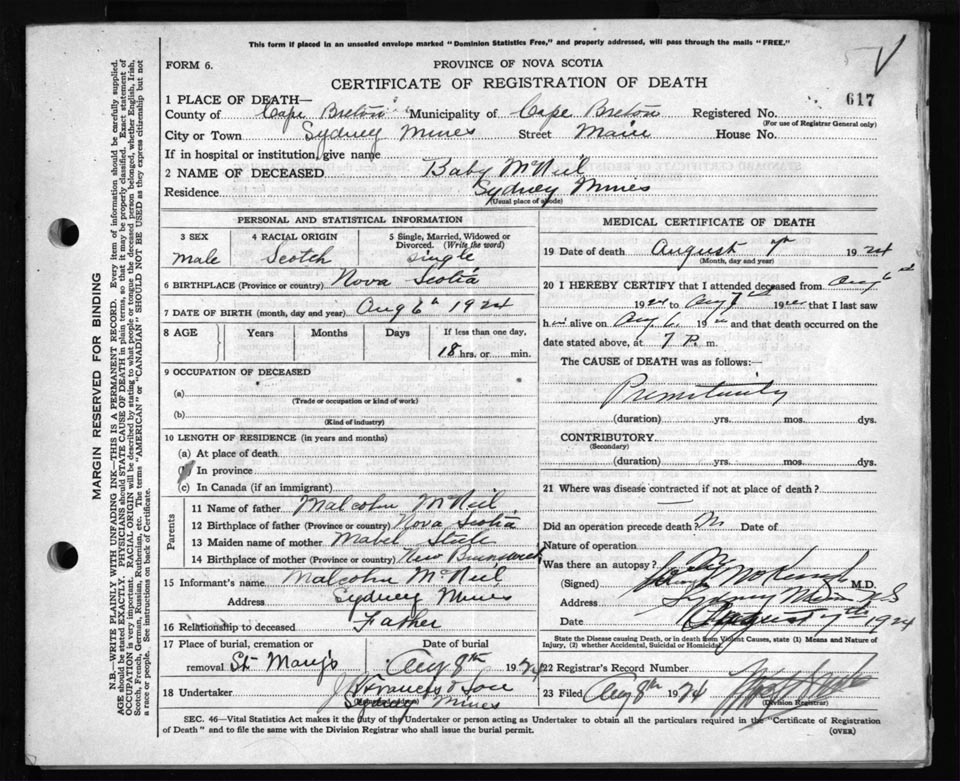 This form if placed in an unsealed envelope marked "Dominion Statistics Free," and properly addressed, will pass through the mails "FREE."
5 √
FORM 6.
PROVINCE OF NOVA SCOTIA
CERTIFICATE OF REGISTRATION OF DEATH
617
1 PLACE OF DEATH—
County of Cape Breton Municipality of Cape Breton Registered No.
(For use of Registrar General only)
City or Town Sydney Mines Street Main House No.
If in hospital or institution, give name
2 NAME OF DECEASED Baby McNeil
Residence Sydney Mines
(Usual place of abode)
PERSONAL AND STATISTICAL INFORMATION
3 SEX 4 RACIAL ORIGIN 5 Single, Married, Widowed or Divorced. (Write the word)
male Scotch single
6 BIRTHPLACE (Province or country) Nova Scotia
7 DATE OF BIRTH (month, day and year) Aug 6th 1924
8 AGE Years Months Days If less than one day,
18 hrs. or min.
9 OCCUPATION OF DECEASED
(a)
(Trade or occupation or kind of work)
(b)
(Kind of industry)
10 LENGTH OF RESIDENCE (in years and months)
(a) At place of death
(b) In province
(c) In Canada (if an immigrant)
Parents
11 Name of father Malcolm McNeil
12 Birthplace of father (Province or country) Nova Scotia
13 Maiden name of mother Mabel Steele
14 Birthplace of mother (Province or country) New Brunswick
15 Informant's name Malcolm McNeil
Address Sydney Mines
16 Relationship to deceased Father
17 Place of burial, cremation or removal St Mary's
Date of burial Aug 8th 1924
18 Undertaker J Francis & Son
Sydney Mines
MEDICAL CERTIFICATE OF DEATH
19 Date of death August 7th 1924
(Month, day and year)
20 I HEREBY CERTIFY that I attended deceased from Aug 6th
1924 to Aug 7th 192 that I last saw
h alive on Aug 6 19 and that death occurred on the
date stated above, at 7 P. m.
The CAUSE of DEATH was as follows:—
Prematurity
(duration) yrs. mos. dys.
CONTRIBUTORY
(Secondary)
(duration) yrs. mos. dys.
21 Where was disease contracted if not at place of death?
Did an operation precede death? No Date of
Nature of operation
Was there an autopsy? No
(Signed) M.D.
Address Sydney Mines N S
Date August 7th 1924
State the Disease causing Death, or in death from Violent Causes, state (1) Means and Nature of Injury, (2) whether Accidental, Suicidal or Homicidal.
22 Registrar's Record Number
23 Filed Aug 8th 1924
(Division Registrar)
SEC. 46—Vital Statistics Act makes it the duty of the Undertaker or person acting as Undertaker to obtain all the particulars required in the "Certificate of Registration
of Death" and to file the same with the Division Registrar who shall issue the burial permit.
(OVER)
MARGIN RESERVED FOR BINDING
N.B.—WRITE PLAINLY WITH UNFADING INK—THIS IS A PERMANENT RECORD. Every item of information should be carefully supplied.
AGE should be stated EXACTLY. PHYSICIANS should STATE CAUSE OF DEATH in plain terms, so that it may be properly classified. Exact statement of
OCCUPATION is very important. RACIAL ORIGIN will be described by stating to what people or tongue the deceased person belonged, whether English, Irish,
Scotch, French, German, Russian, Ruthenian, etc. The terms "AMERICAN" or "CANADIAN" SHOULD NOT BE USED as they express citizenship but not
a race or people. See instructions on back of Certificate.